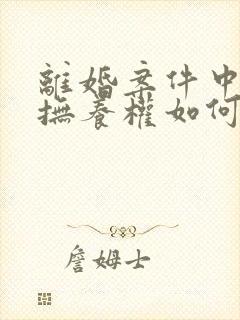 離婚案件中
撫養權如何
詹姆士